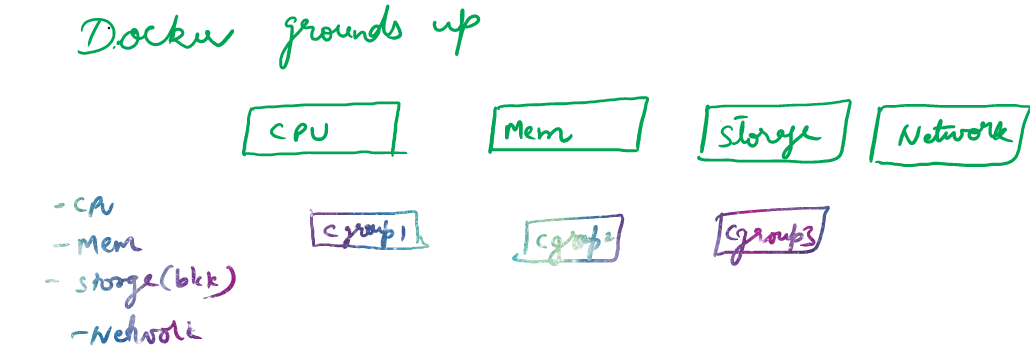 Docker grounds up
CPU Mem Storage Network
- CPU
- Mem
- Storge(blkk)
- Network
cgroup1 cgroup2 cgroup3